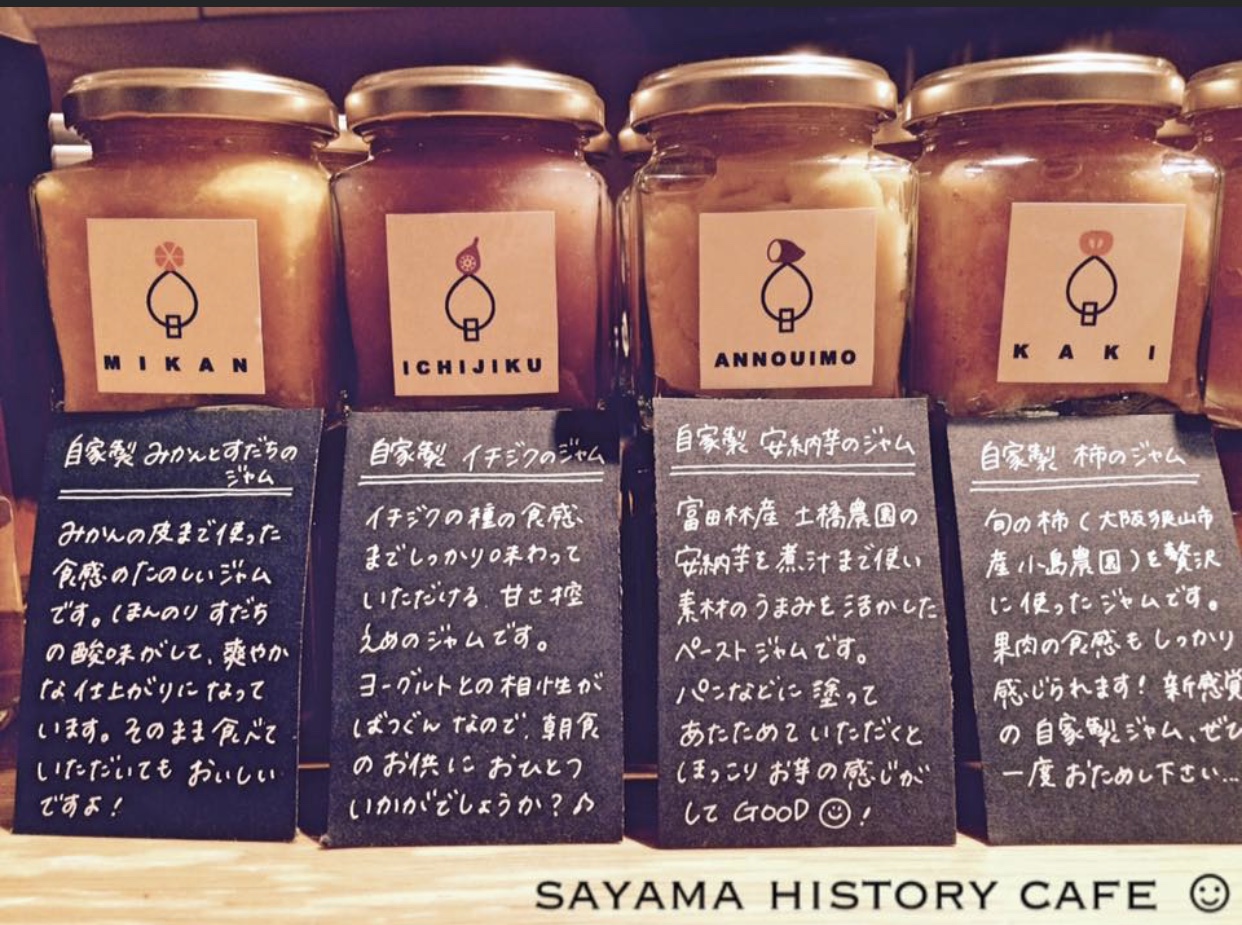 MIKAN
自家製 みかんとすだちの
ジャム
みかんの皮まで使った
食感のたのしいジャム
です。ほんのり すだち
の酸味がして、爽やか
な仕上がりに なって
います。そのまま食べて
いただいても おいしい
ですよ!
ICHIJIKU
自家製 イチジクのジャム
イチジクの種の食感
までしっかり味わって
いただける 甘さ控
えめのジャムです。
ヨーグルトとの相性が
ばつぐん なので、朝食
のお供に おひとつ
いかがでしょうか?♪
ANNOUIMO
自家製 安納芋のジャム
富田林産 土橋農園の
安納芋を煮汁まで使い
素材のうまみを活かした
ペーストジャムです。
パンなどに 塗って
あたためていただくと
ほっこりお芋の感じが
して GOOD ☺!
KAKI
自家製 柿のジャム
旬の柿(大阪狭山市
産小島農園)を贅沢
に使ったジャムです。
果肉の食感も しっかり
感じられます! 新感覚
の 自家製ジャム、ぜひ
一度おためし下さい...
SAYAMA HISTORY CAFE ☺